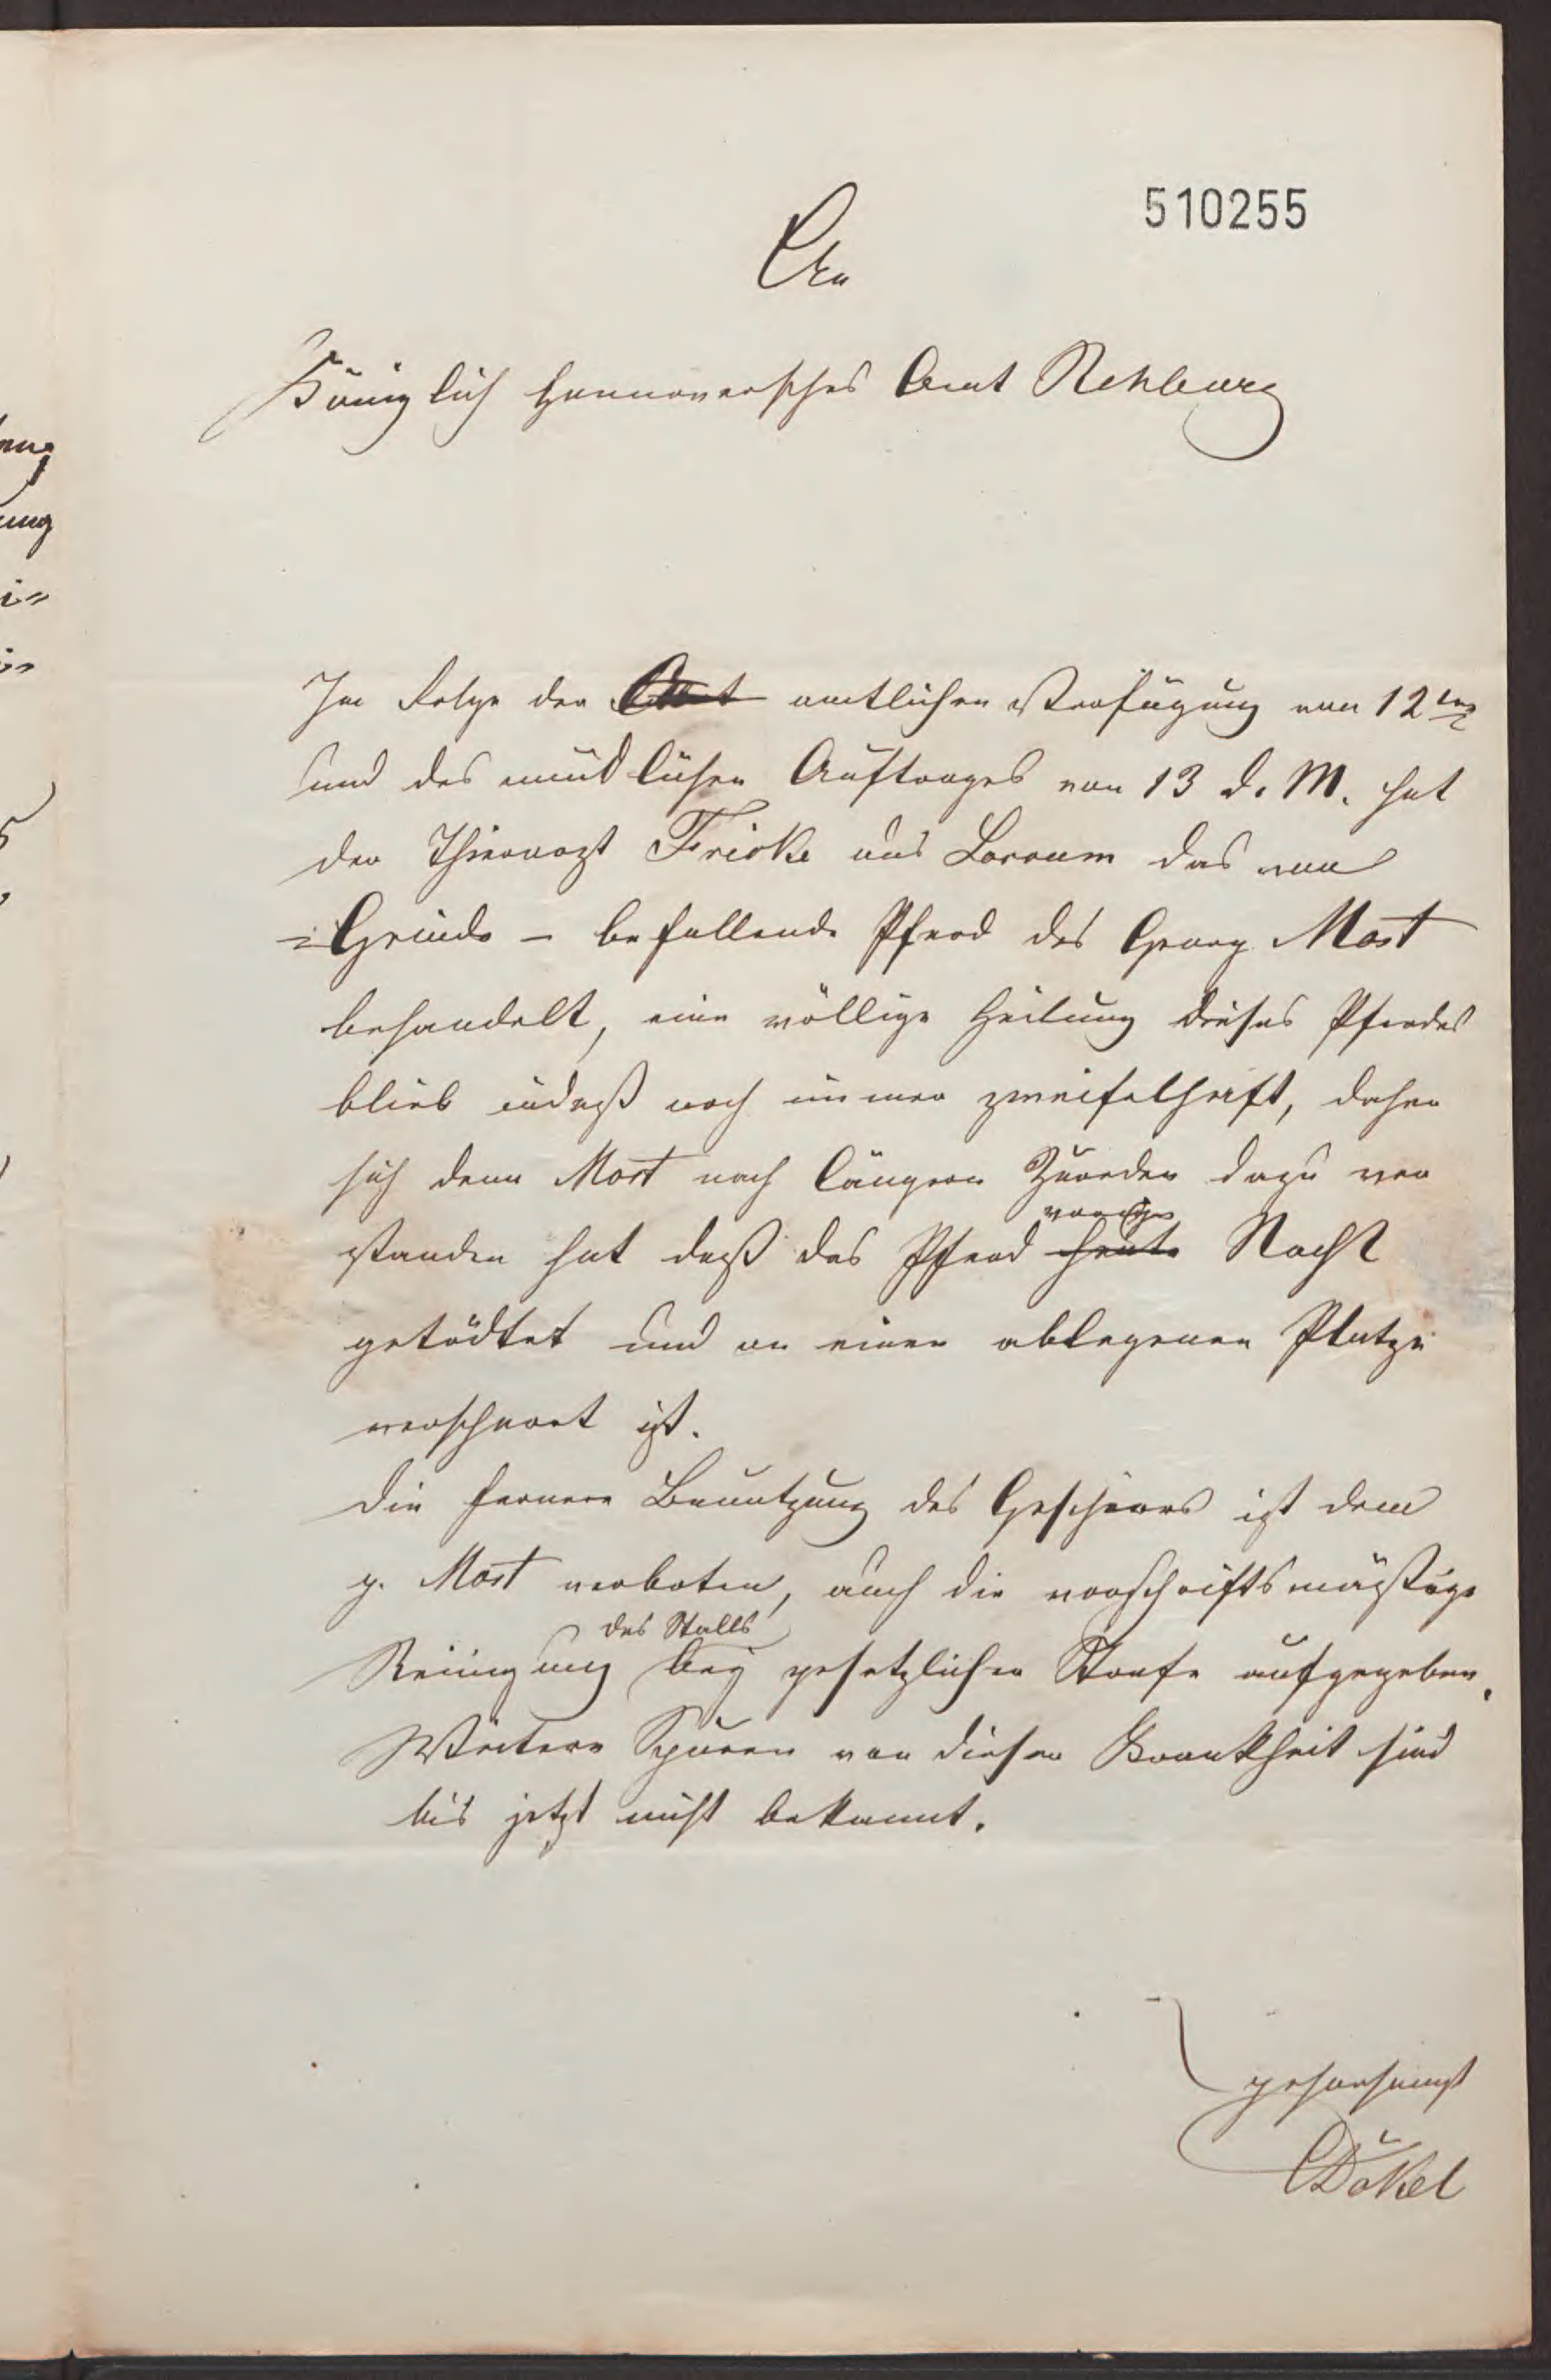 510255
An
Königlich Hannoversches Amt Rehburg
In Folge der Amt amtlichen Verfügung von 12ten
und des mündlichen Auftrages von 13 d. M. hat
der Thierarzt Fricke aus Loccum das von
Grinde - befallende Pferd des Georg Most
behandelt, eine völlige Heilung dieses Pferdes
blieb indeß noch immer zweifelhaft, daher
sich denn Most nach längern Zureden dazu ver
standen hat daß das Pferd heute vorige Nacht
getödtet und an einen ablegenen Platze
verscharrt ist.
Die fernere Benutzung des Geschirrs ist dem
p. Most verboten, auch die vorschriftsmäßige
Reinigung des Stalls bey gesetzlicher Strafe aufgegeben.
Weitere Spuren von dieser Krankheit sind
bis jetzt nicht bekannt.
gehorsamst
Dökel